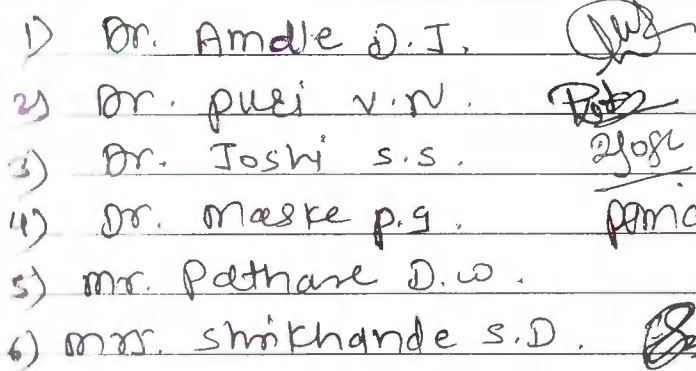 1) Dr. Amdle D.J.
2) Dr. puri v.N.
3) Dr. Joshi s.s. Joshi
4) Dr. Maske p.g.
5) mr. Pathare D.W.
6) mrs. Shrikhande S.D.